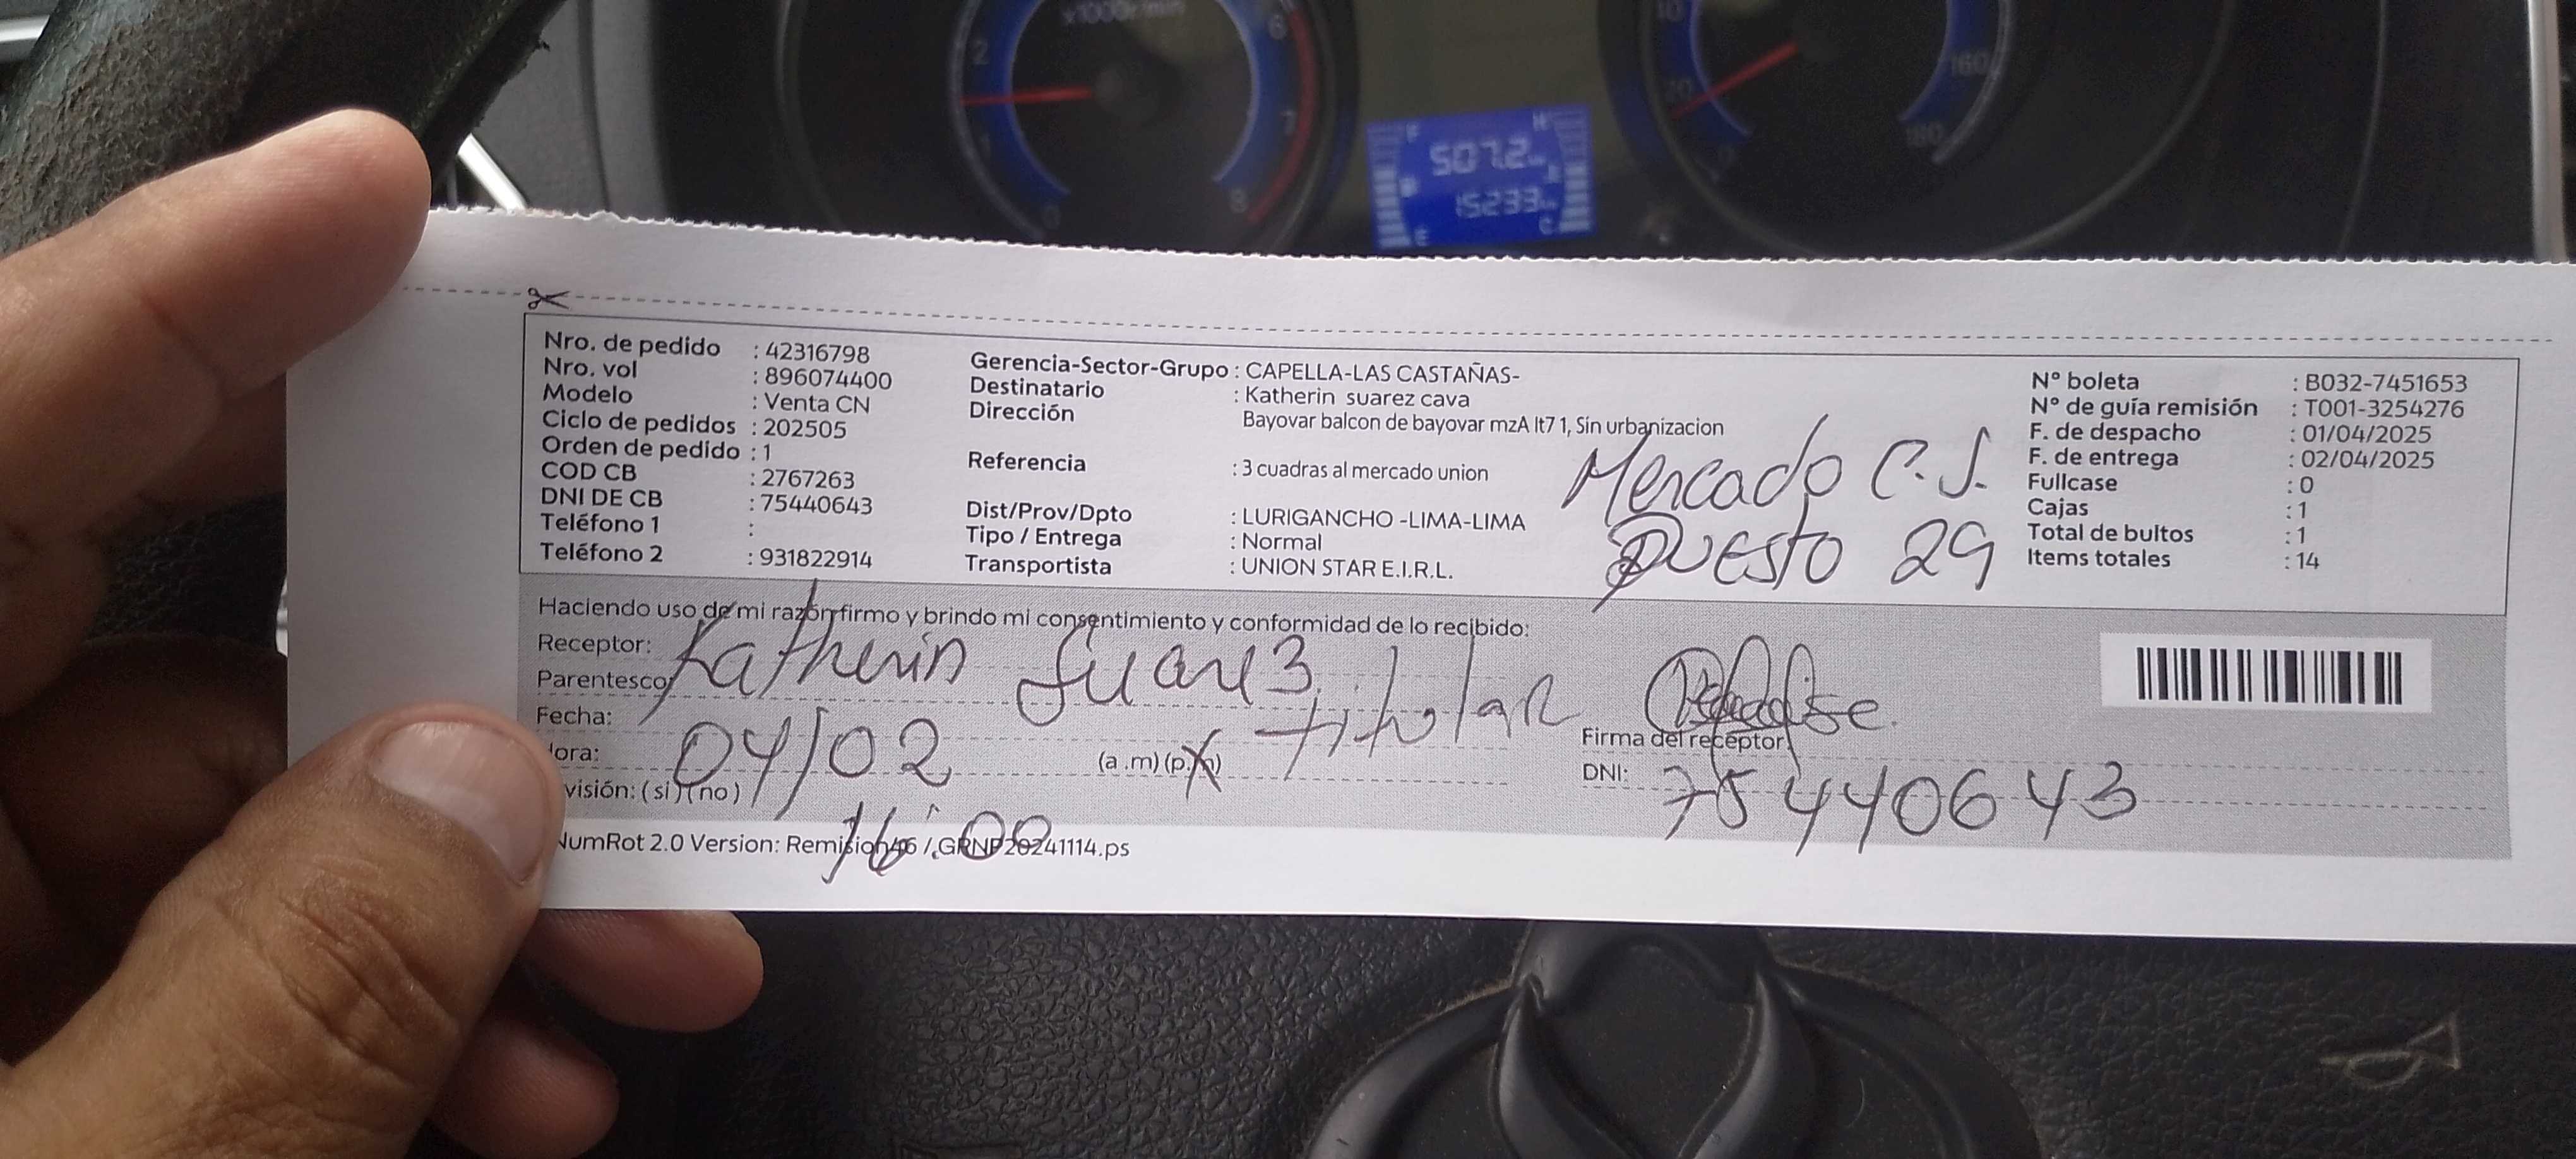 x1000r/min
2
1
0
6
7
8
F
H
507.2
15233
E
C
160
180
Nro. de pedido : 42316798
Nro. vol : 896074400
Modelo : Venta CN
Ciclo de pedidos : 202505
Orden de pedido : 1
COD CB : 2767263
DNI DE CB : 75440643
Teléfono 1 :
Teléfono 2 : 931822914
Gerencia-Sector-Grupo : CAPELLA-LAS CASTAÑAS-
Destinatario : Katherin suarez cava
Dirección
Bayovar balcon de bayovar mzA lt7 1, Sin urbanizacion
Referencia : 3 cuadras al mercado union
Dist/Prov/Dpto : LURIGANCHO -LIMA-LIMA
Tipo / Entrega : Normal
Transportista : UNION STAR E.I.R.L.
Mercado C.S.
Puesto 29
N° boleta : B032-7451653
N° de guía remisión : T001-3254276
F. de despacho : 01/04/2025
F. de entrega : 02/04/2025
Fullcase : 0
Cajas : 1
Total de bultos : 1
Items totales : 14
Haciendo uso de mi razón firmo y brindo mi consentimiento y conformidad de lo recibido:
Receptor: Katherin Suarez
Parentesco: titular
Fecha: 04/02
ora: (a.m) (p.m)
visión: (si) (no)
16:00
Firma del receptor
DNI: 75440643
NumRot 2.0 Version: Remision46 / GRNP20241114.ps